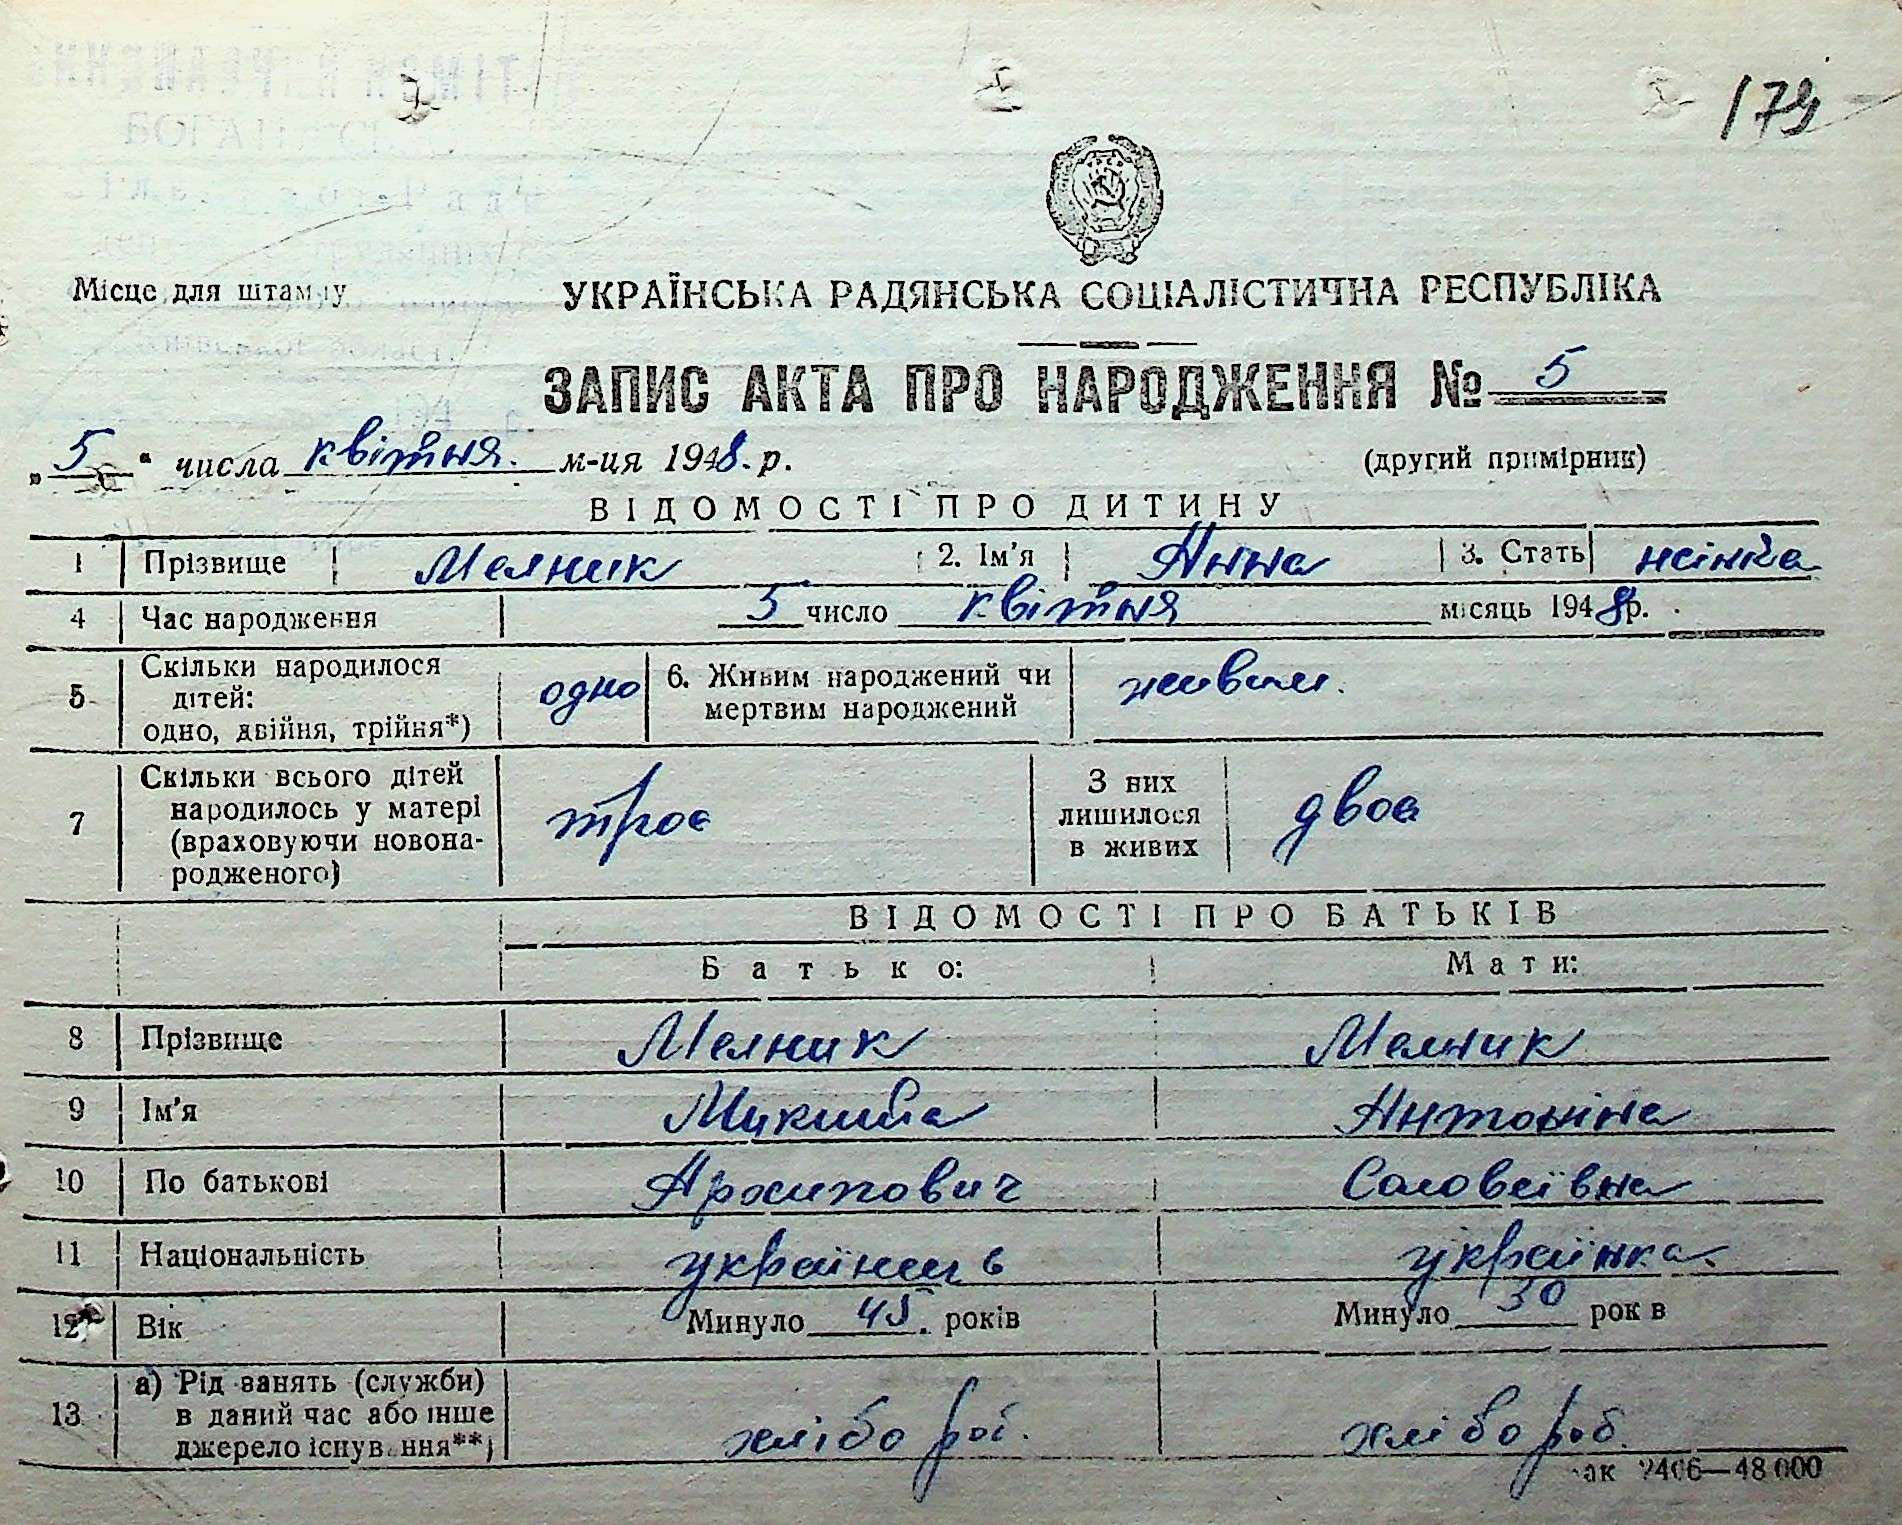 179
Місце для штампу
УКРАЇНСЬКА РАДЯНСЬКА СОЦІАЛІСТИЧНА РЕСПУБЛІКА
ЗАПИС АКТА ПРО НАРОДЖЕННЯ № 5
„5“ числа квітня. м-ця 1948. р. (другий примірник)
ВІДОМОСТІ ПРО ДИТИНУ
1 Прізвище Мелник 2. Ім'я Анна 3. Стать жіноча
4 Час народження 5 число квітня місяць 1948р.
5 Скільки народилося дітей: одно, двійня, трійня*) одно 6. Живим народжений чи мертвим народжений живим.
7 Скільки всього дітей народилось у матері (враховуючи новонародженого) троє З них лишилося в живих двоє
ВІДОМОСТІ ПРО БАТЬКІВ
Батько: Мати:
8 Прізвище Мелник Мелник
9 Ім'я Микита Антоніна
10 По батькові Архипович Соловеївна
11 Національність українець українка.
12 Вік Минуло 45. років Минуло 30 років
13 а) Рід занять (служби) в даний час або інше джерело існування**) хлібороб. хлібороб.
ак 2406—48 000